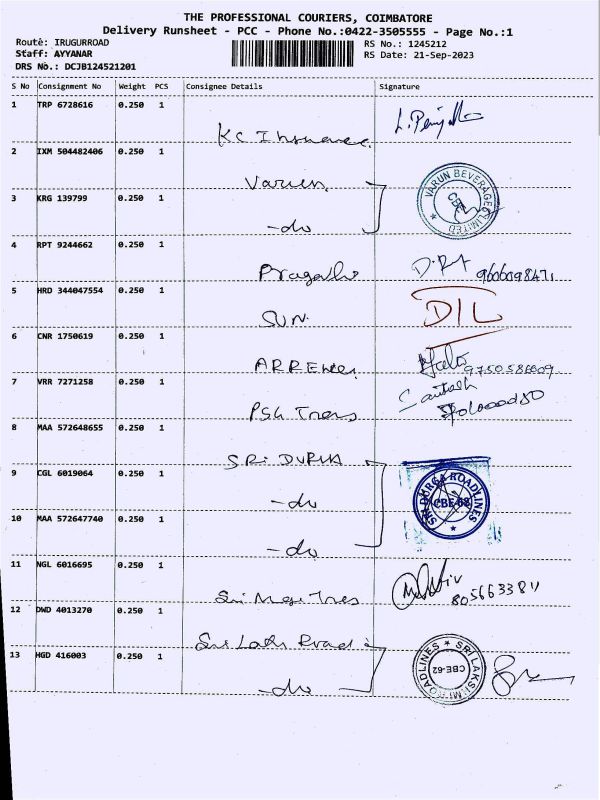 THE PROFESSIONAL COURIERS, COIMBATORE
Delivery Runsheet - PCC - Phone No.:0422-3505555 - Page No.:1
Route: IRUGURROAD
Staff: AYYANAR
DRS No.: DCJB124521201
RS No.: 1245212
RS Date: 21-Sep-2023
S No Consignment No Weight PCS Consignee Details Signature
1 TRP 6728616 0.250 1
KC Insurance
2 IXM 504482406 0.250 1
Varun
VARUN BEVERAGES LIMITED
CBE
3 KRG 139799 0.250 1
-do
4 RPT 9244662 0.250 1
Pragathi
9606098471
5 HRD 344047554 0.250 1
SUN
DIL
6 CNR 1750619 0.250 1
7 VRR 7271258 0.250 1
PSG Trans
Santosh
8 MAA 572648655 0.250 1
SRI DURGA
9 CGL 6019064 0.250 1
-do
SRI DURGA ROADLINES
CBE-68
10 MAA 572647740 0.250 1
-do
11 NGL 6016695 0.250 1
8056633811
12 DWD 4013270 0.250 1
13 HGD 416003 0.250 1
-do
SRI LAKSHMI ROADLINES
CBE-62